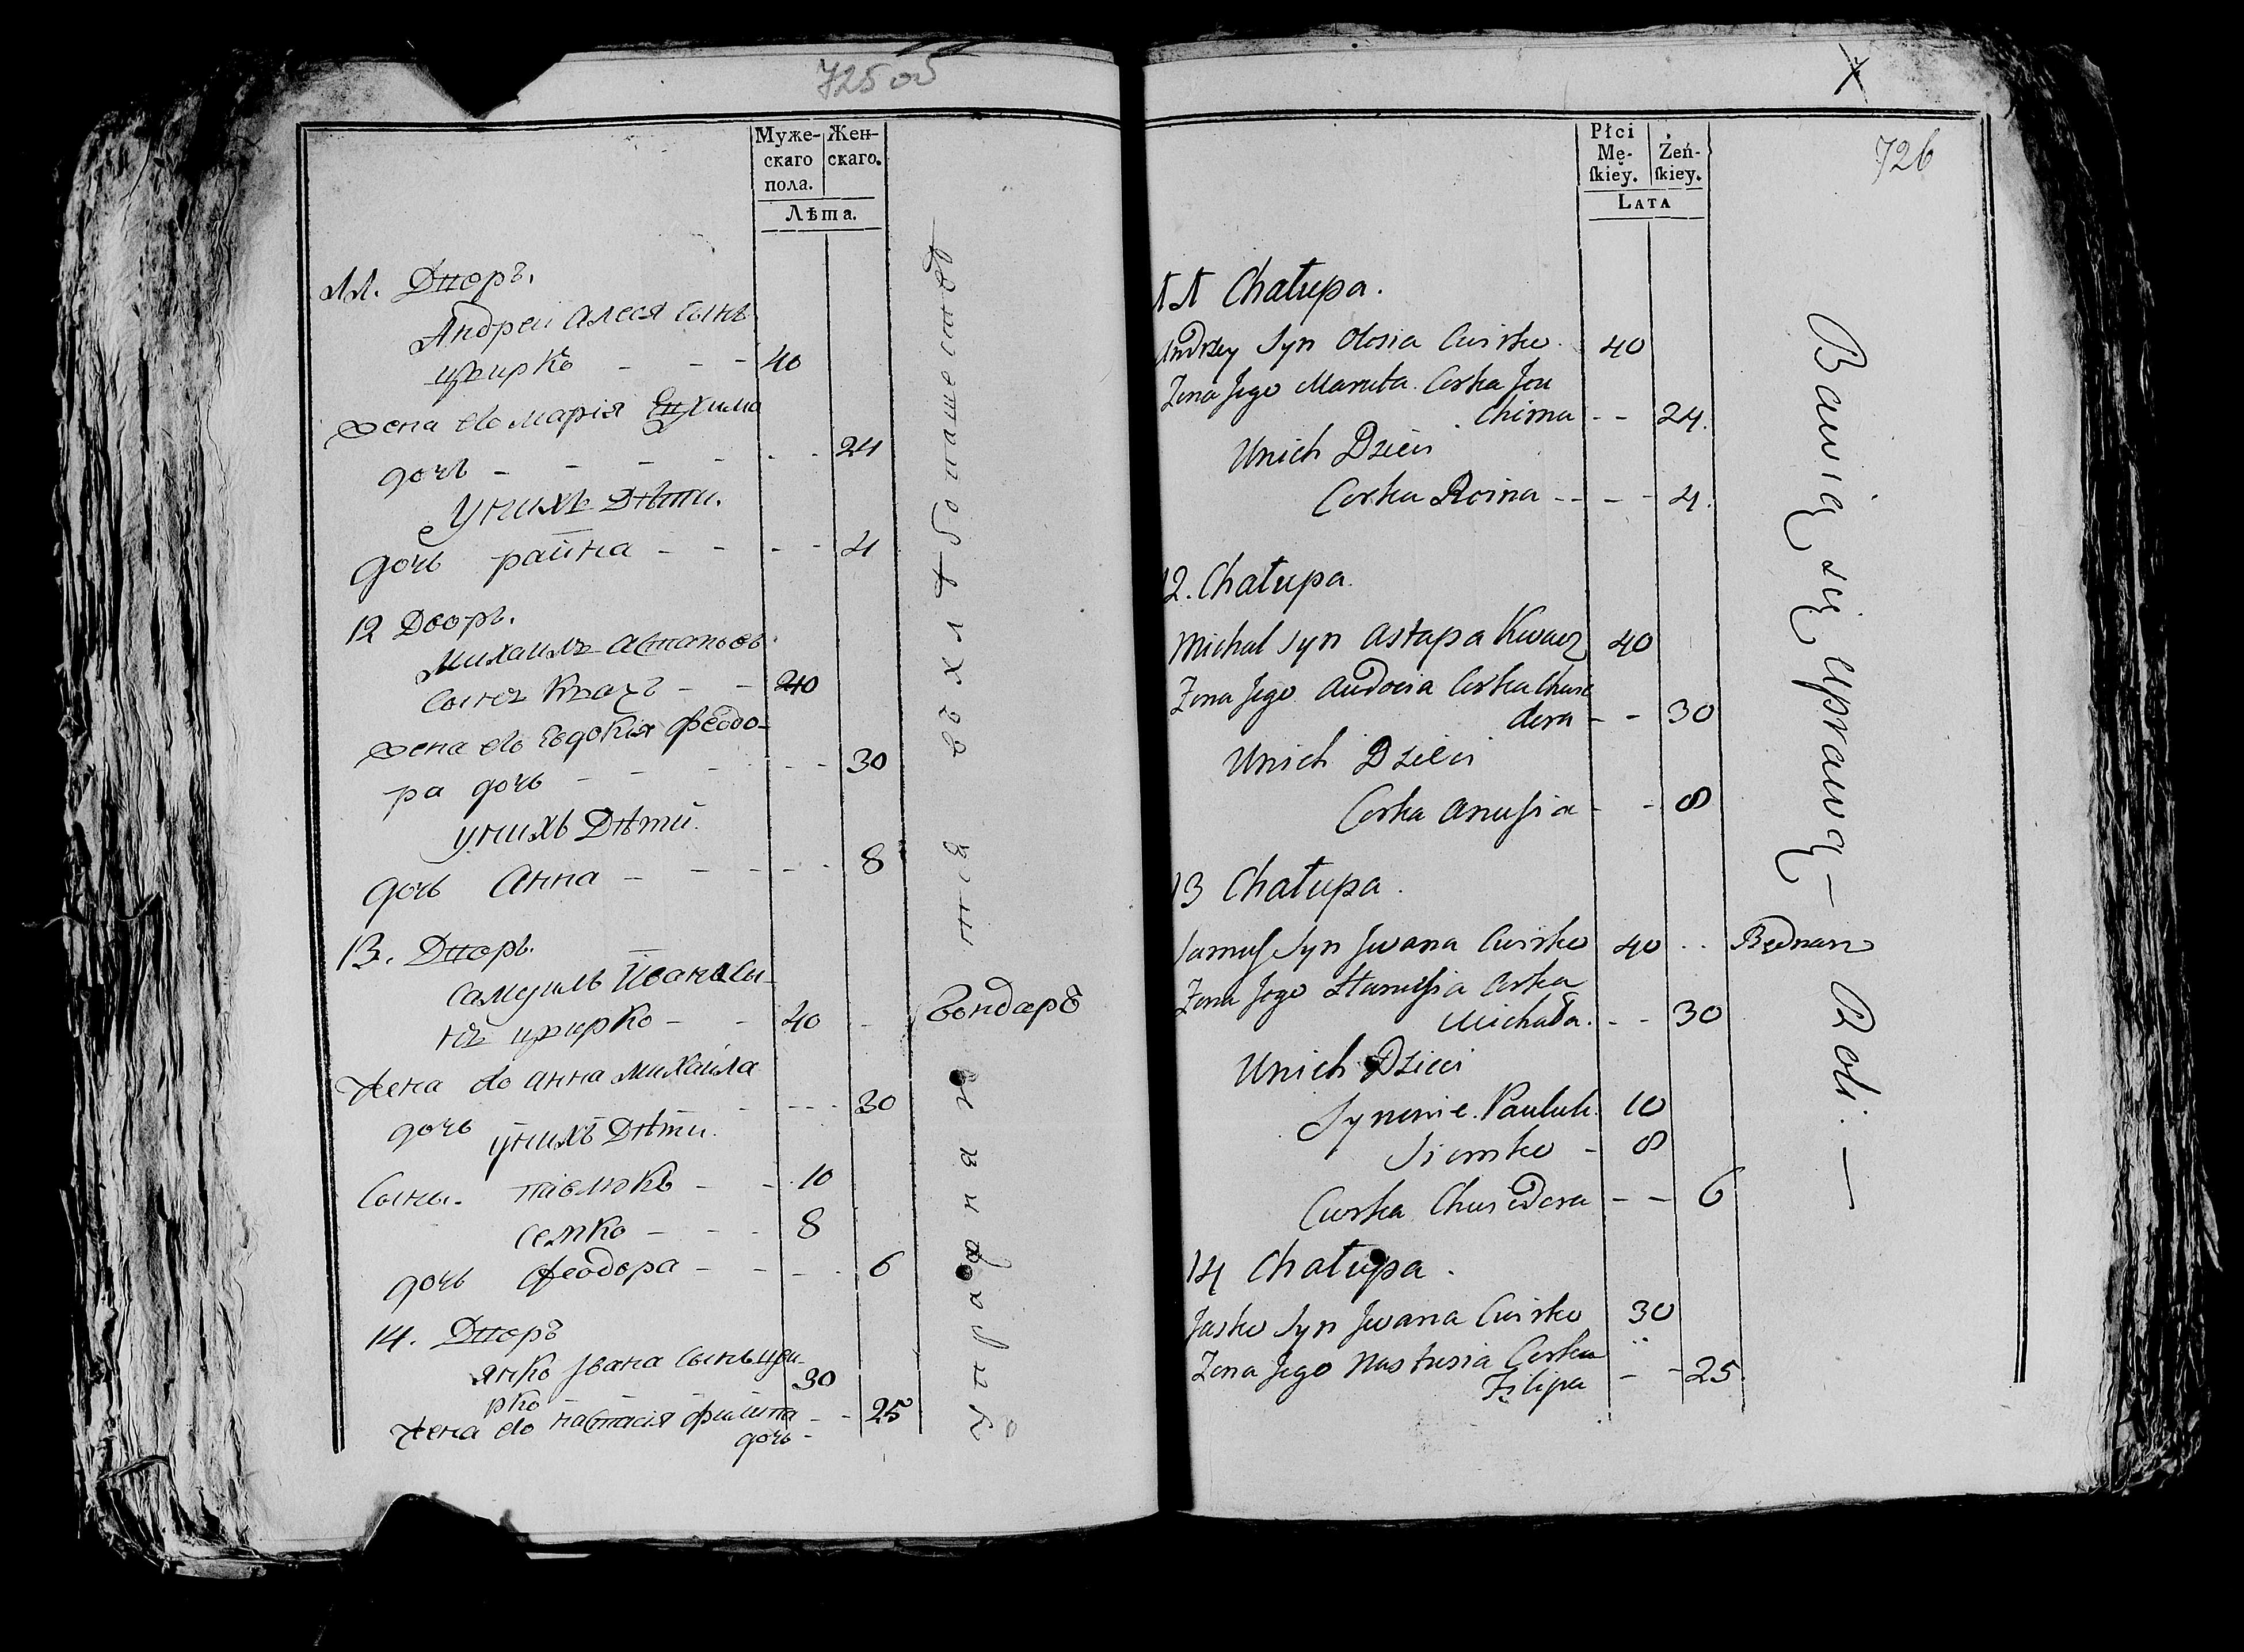 725 об
Муже-
скаго
пола.
Жен-
скаго.
Лѣта.
11. Дворъ.
Андрей Алеся Сынъ
цвирко - - - 40
Жена его Марія Евхима
дочь - - - - - - 24
У нихъ Дѣти.
дочь райна - - - - 4
12 Дворъ.
Михаилъ Астаповъ
Сынъ Квачъ - - 40
Жена его Евдокія Феодо-
ра дочь - - - - - 30
у нихъ Дѣти.
дочь Анна - - - - - 8
13. Дворъ.
Самуилъ Ивана Сы-
нъ цвирко - - 40 - бондаръ
Жена его Анна Михайла
дочь - - - - 30
у нихъ Дѣти.
Сыны. павлюкъ - - 10
семко - - - 8
дочь Феодора - - - - 6
14. Дворъ
Янко Ивана Сынъ цви-
рко - 30
Жена его Настасія Филипа - - 25
дочь -
X
726
Płci
Mę-
skiey.
Żeń-
skiey.
LATA
11 Chałupa.
Andrzey Syn Olesia Cwirko. 40
Zona Jego Maruta Corka Jeu
chima - - 24.
Unich Dzieci
Corka Roina - - - - 4.
12. Chałupa.
Michał Syn Astapa Kwacz 40
Zona Jego Audocia Corka Chwie
dora - - 30
Unich Dzieci
Corka Anusia - - 8
13 Chałupa.
Samuś Syn Jwana Cwirko 40 .. Bednarz
Zona Jego Hanusia Corka
Michała. - - 30
Unich Dzieci
Synowie. Pauluk. 10
Siomko - 8
Curka Chwiedora - - 6
14 Chałupa.
Jasko Syn Jwana Cwirko 30
Zona Jego Nastusia Corka
Filipa - - 25.
Bawią się Uprawą - Roli. —